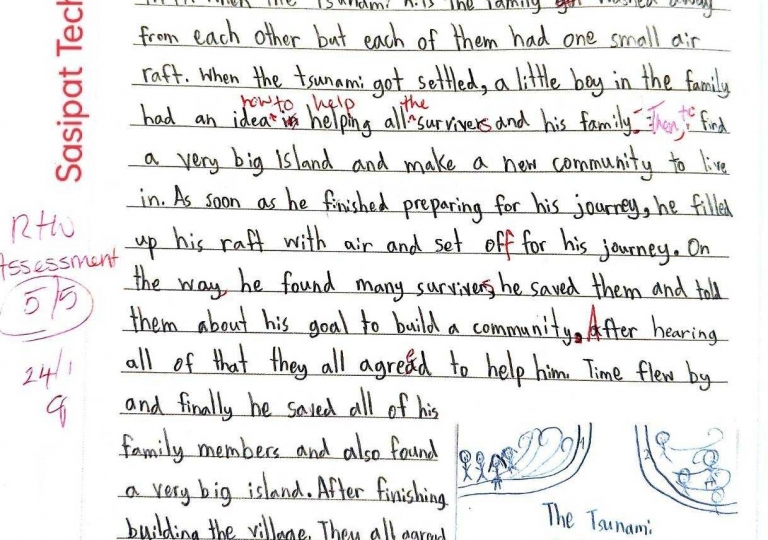 the Tsunami
the family washed away
from each other but each of them had one small air
raft. When the tsunami got settled, a little boy in the family
how to help the
had an idea helping all survivers and his family. Then, to find
a very big Island and make a new community to live
in. As soon as he finished preparing for his journey, he filled
up his raft with air and set off for his journey. On
the way, he found many survivers, he saved them and told
them about his goal to build a community. After hearing
all of that they all agreed to help him. Time flew by
and finally he saved all of his
family members and also found
a very big island. After finishing
building the village. They all agreed
Sasipat Tech
Assessment
5/5
24/1
9
1
2
The Tsunami